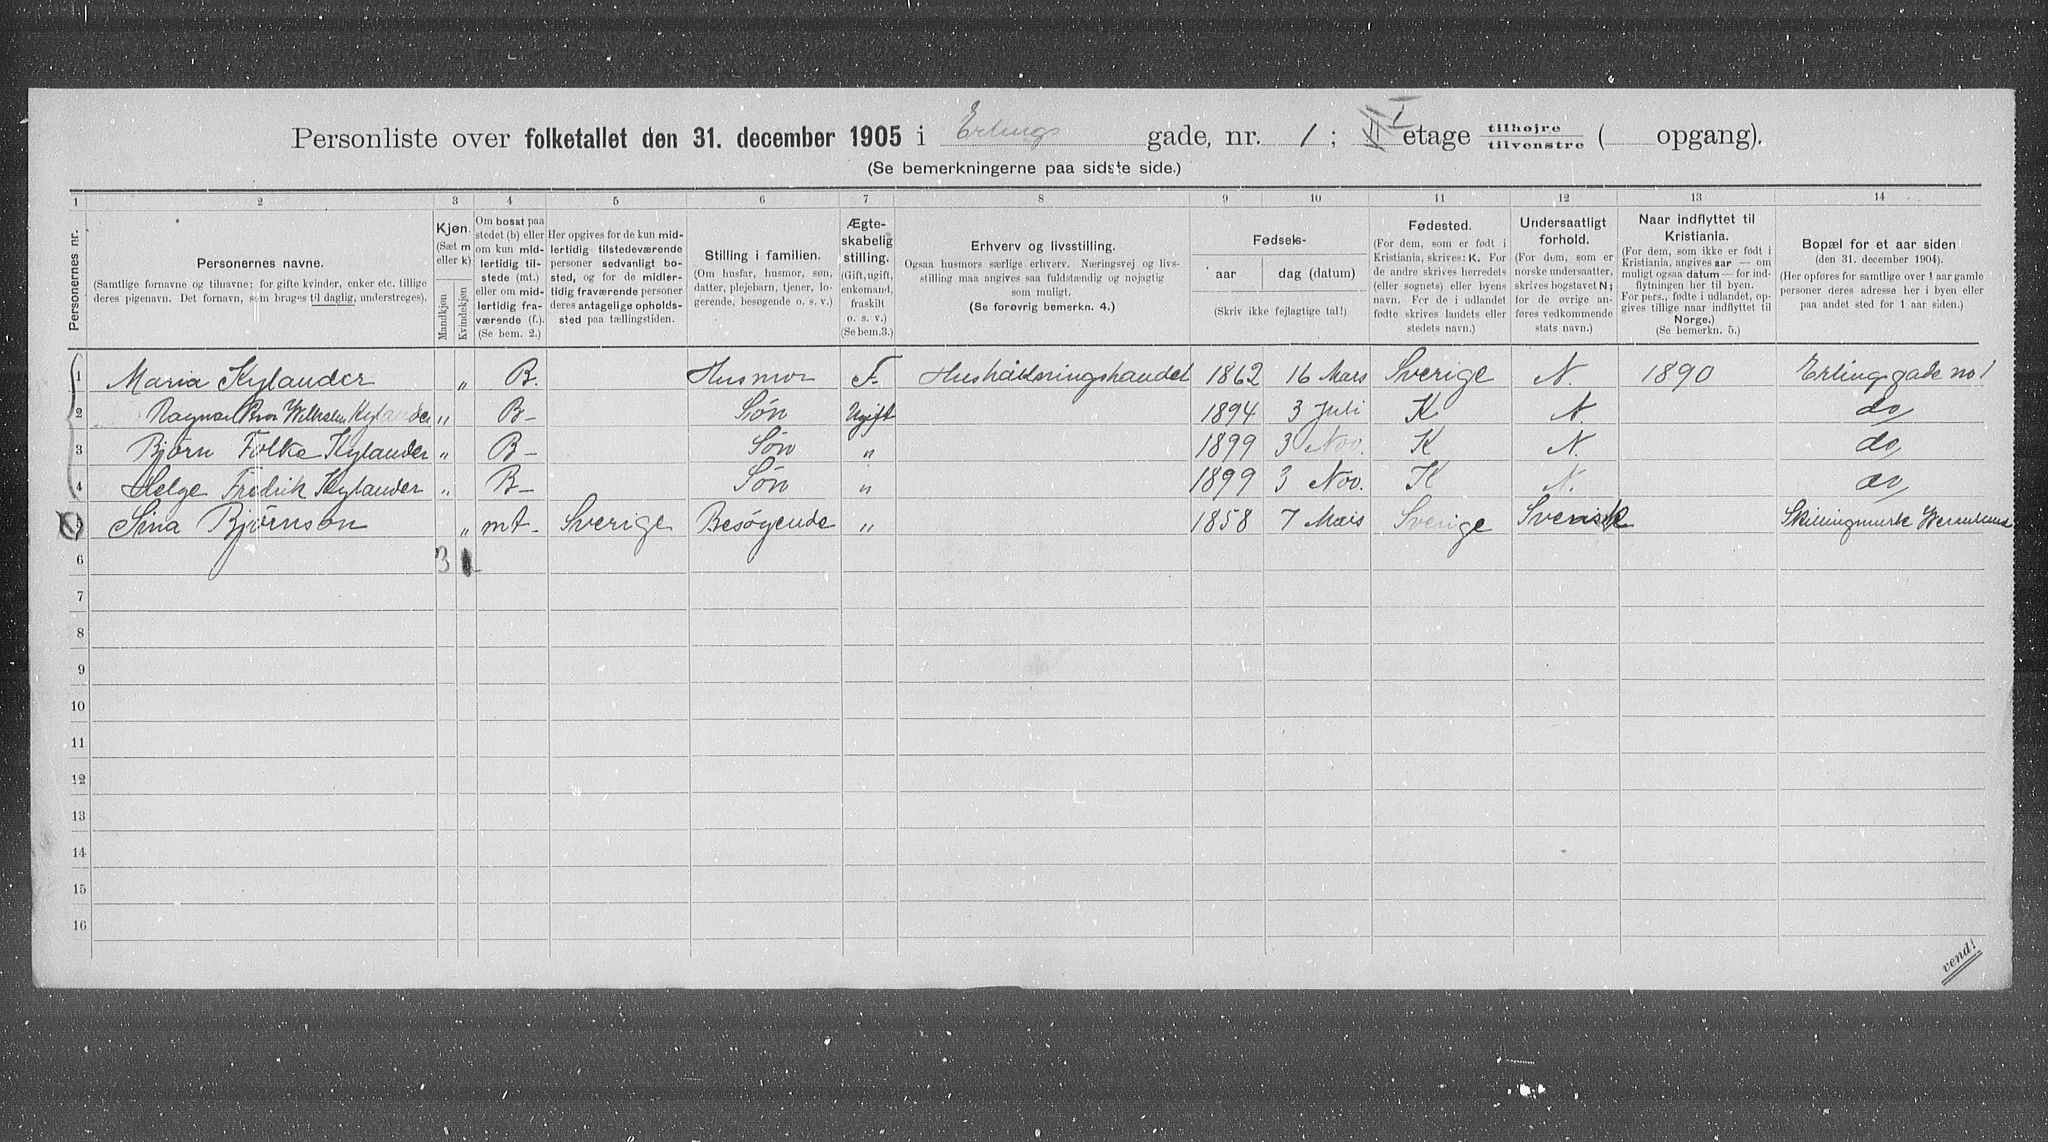 Personliste over folketallet den 31. december 1905 i Erlings gade, nr. 1; I etage tilhøjre tilvenstre ( opgang).
(Se bemerkningerne paa sidste side.)
1 2 3 4 5 6 7 8 9 10 11 12 13 14
Personernes nr.
Personernes navne.
(Samtlige fornavne og tilnavne; for gifte kvinder, enker etc. tillige
deres pigenavn. Det fornavn, som bruges til daglig, understreges).
Kjøn.
(Sæt m
eller k).
Mandkjøn
Kvindekjøn
Om bosat paa
stedet (b) eller
om kun mid-
lertidig til-
stede (mt.)
eller om mid-
lertidig fra-
værende (f.).
(Se bem. 2.)
Her opgives for de kun mid-
lertidig tilstedeværende
personer sedvanligt bo-
sted, og for de midler-
tidig fraværende personer
deres antagelige opholds-
sted paa tællingstiden.
Stilling i familien.
(Om husfar, husmor, søn,
datter, plejebarn, tjener, lo-
gerende, besøgende o. s. v.)
Ægte-
skabelig
stilling.
(Gift, ugift,
enkemand,
fraskilt
o. s. v.)
(Se bem. 3.)
Erhverv og livsstilling.
Ogsaa husmors særlige erhverv. Næringsvej og livs-
stilling maa angives saa fuldstændig og nøjagtig
som muligt.
(Se forøvrig bemerkn. 4.)
Fødsels-
aar dag (datum)
(Skriv ikke fejlagtige tal!)
Fødested.
(For dem, som er født i
Kristiania, skrives: K. For
de andre skrives herredets
(eller sognets) eller byens
navn. For de i udlandet
fødte skrives landets eller
stedets navn.)
Undersaatligt
forhold.
(For dem, som er
norske undersaatter,
skrives bogstavet N;
for de øvrige an-
føres vedkommende
stats navn.)
Naar indflyttet til
Kristiania.
(For dem, som ikke er født i
Kristiania, angives aar — om
muligt ogsaa datum — for ind-
flytningen her til byen.
For pers., fødte i udlandet, op-
gives tillige naar indflyttet til
Norge.)
(Se bemerkn. 5.)
Bopæl for et aar siden
(den 31. december 1904).
(Her opføres for samtlige over 1 aar gamle
personer deres adresse her i byen eller
paa andet sted for 1 aar siden.)
1 Maria Kylander „ B. Husmor F. Husholdningshandel 1862 16 Mars Sverige N. 1890 Erlingsgade no 1
2 Ragnar Wilhelm Kylander „ B- Søn Ugift 1894 3 Juli K N. do
3 Bjørn Folke Kylander „ B- Søn „ 1899 3 Nov. K N. do
4 Helge Fredrik Kylander „ B- Søn „ 1899 3 Nov. K N. do
5 Sina Bjørnson „ mt- Sverige Besøgende „ 1858 7 Mars Sverige Svensk Skillingmark Wermland
6 3
7
8
9
10
11
12
13
14
15
16
vend!